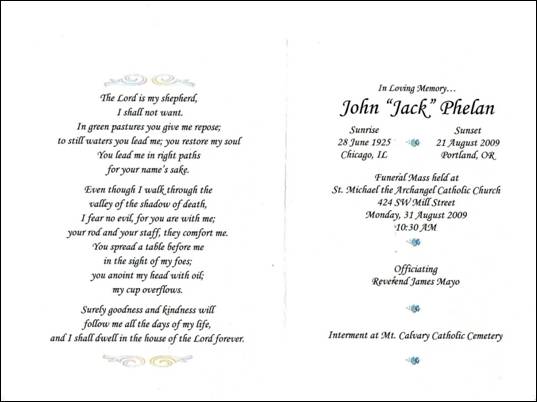 The Lord is my shepherd,
I shall not want.
In green pastures you give me repose;
to still waters you lead me; you restore my soul
You lead me in right paths
for your name's sake.
Even though I walk through the
valley of the shadow of death,
I fear no evil, for you are with me;
your rod and your staff, they comfort me.
You spread a table before me
in the sight of my foes;
you anoint my head with oil;
my cup overflows.
Surely goodness and kindness will
follow me all the days of my life,
and I shall dwell in the house of the Lord forever.
In Loving Memory…
John “Jack” Phelan
Sunrise Sunset
28 June 1925 21 August 2009
Chicago, IL Portland, OR
Funeral Mass held at
St. Michael the Archangel Catholic Church
424 SW Mill Street
Monday, 31 August 2009
10:30 AM
Officiating
Reverend James Mayo
Interment at Mt. Calvary Catholic Cemetery